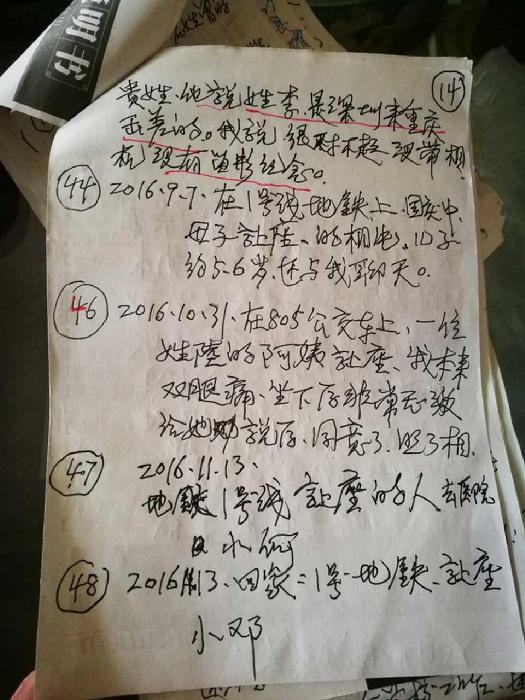 明书
14
贵姓、他说姓李、是深圳来重庆
出差的。我说很对不起、没带相
机没有留影纪念。
44
2016.9.7.在1号线地铁上、国庆中、
母子让座、的相片、儿子
约5-6岁、还与我聊天。
46
2016.10.31.在805公交车上、一位
姓陸的阿姨让座、我本来
双腿痛、坐下后非常感激
给她说后、同意了、照了相.
47
2016.11.13.
地铁1号线让座的人去医院
小何
48
2016.11.13.回家=1号地铁、让座
小邓